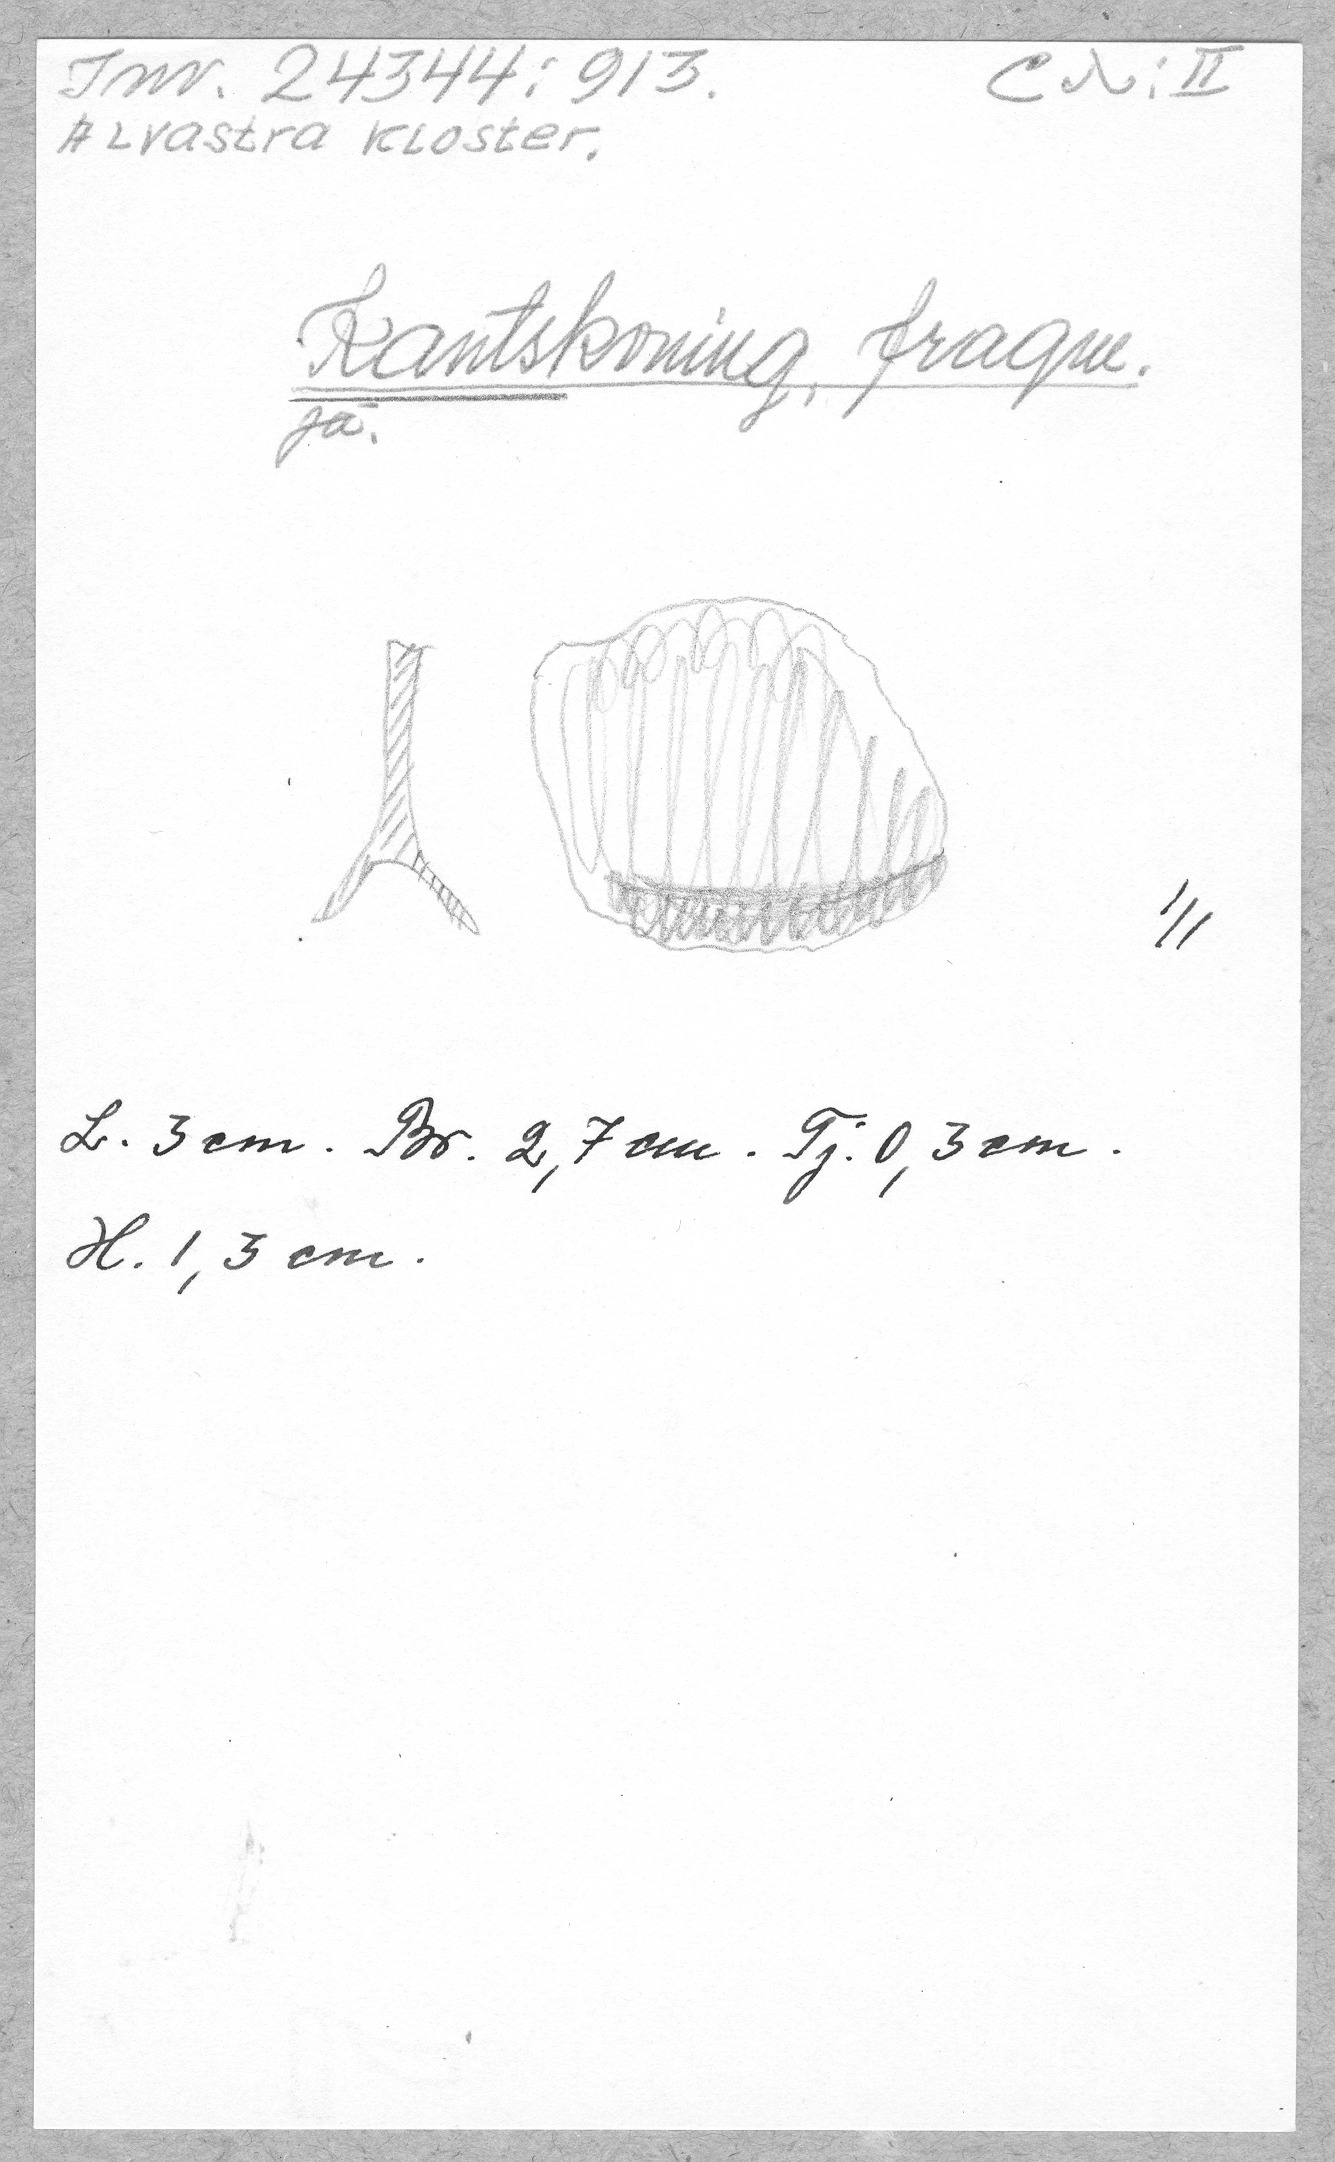 Inv. 24344:913.
Alvastra Kloster.
Kantskoning, fragm.
jä.
1/1
L. 3 cm. Br. 2,7 cm. Tj. 0,3 cm.
H. 1,3 cm.